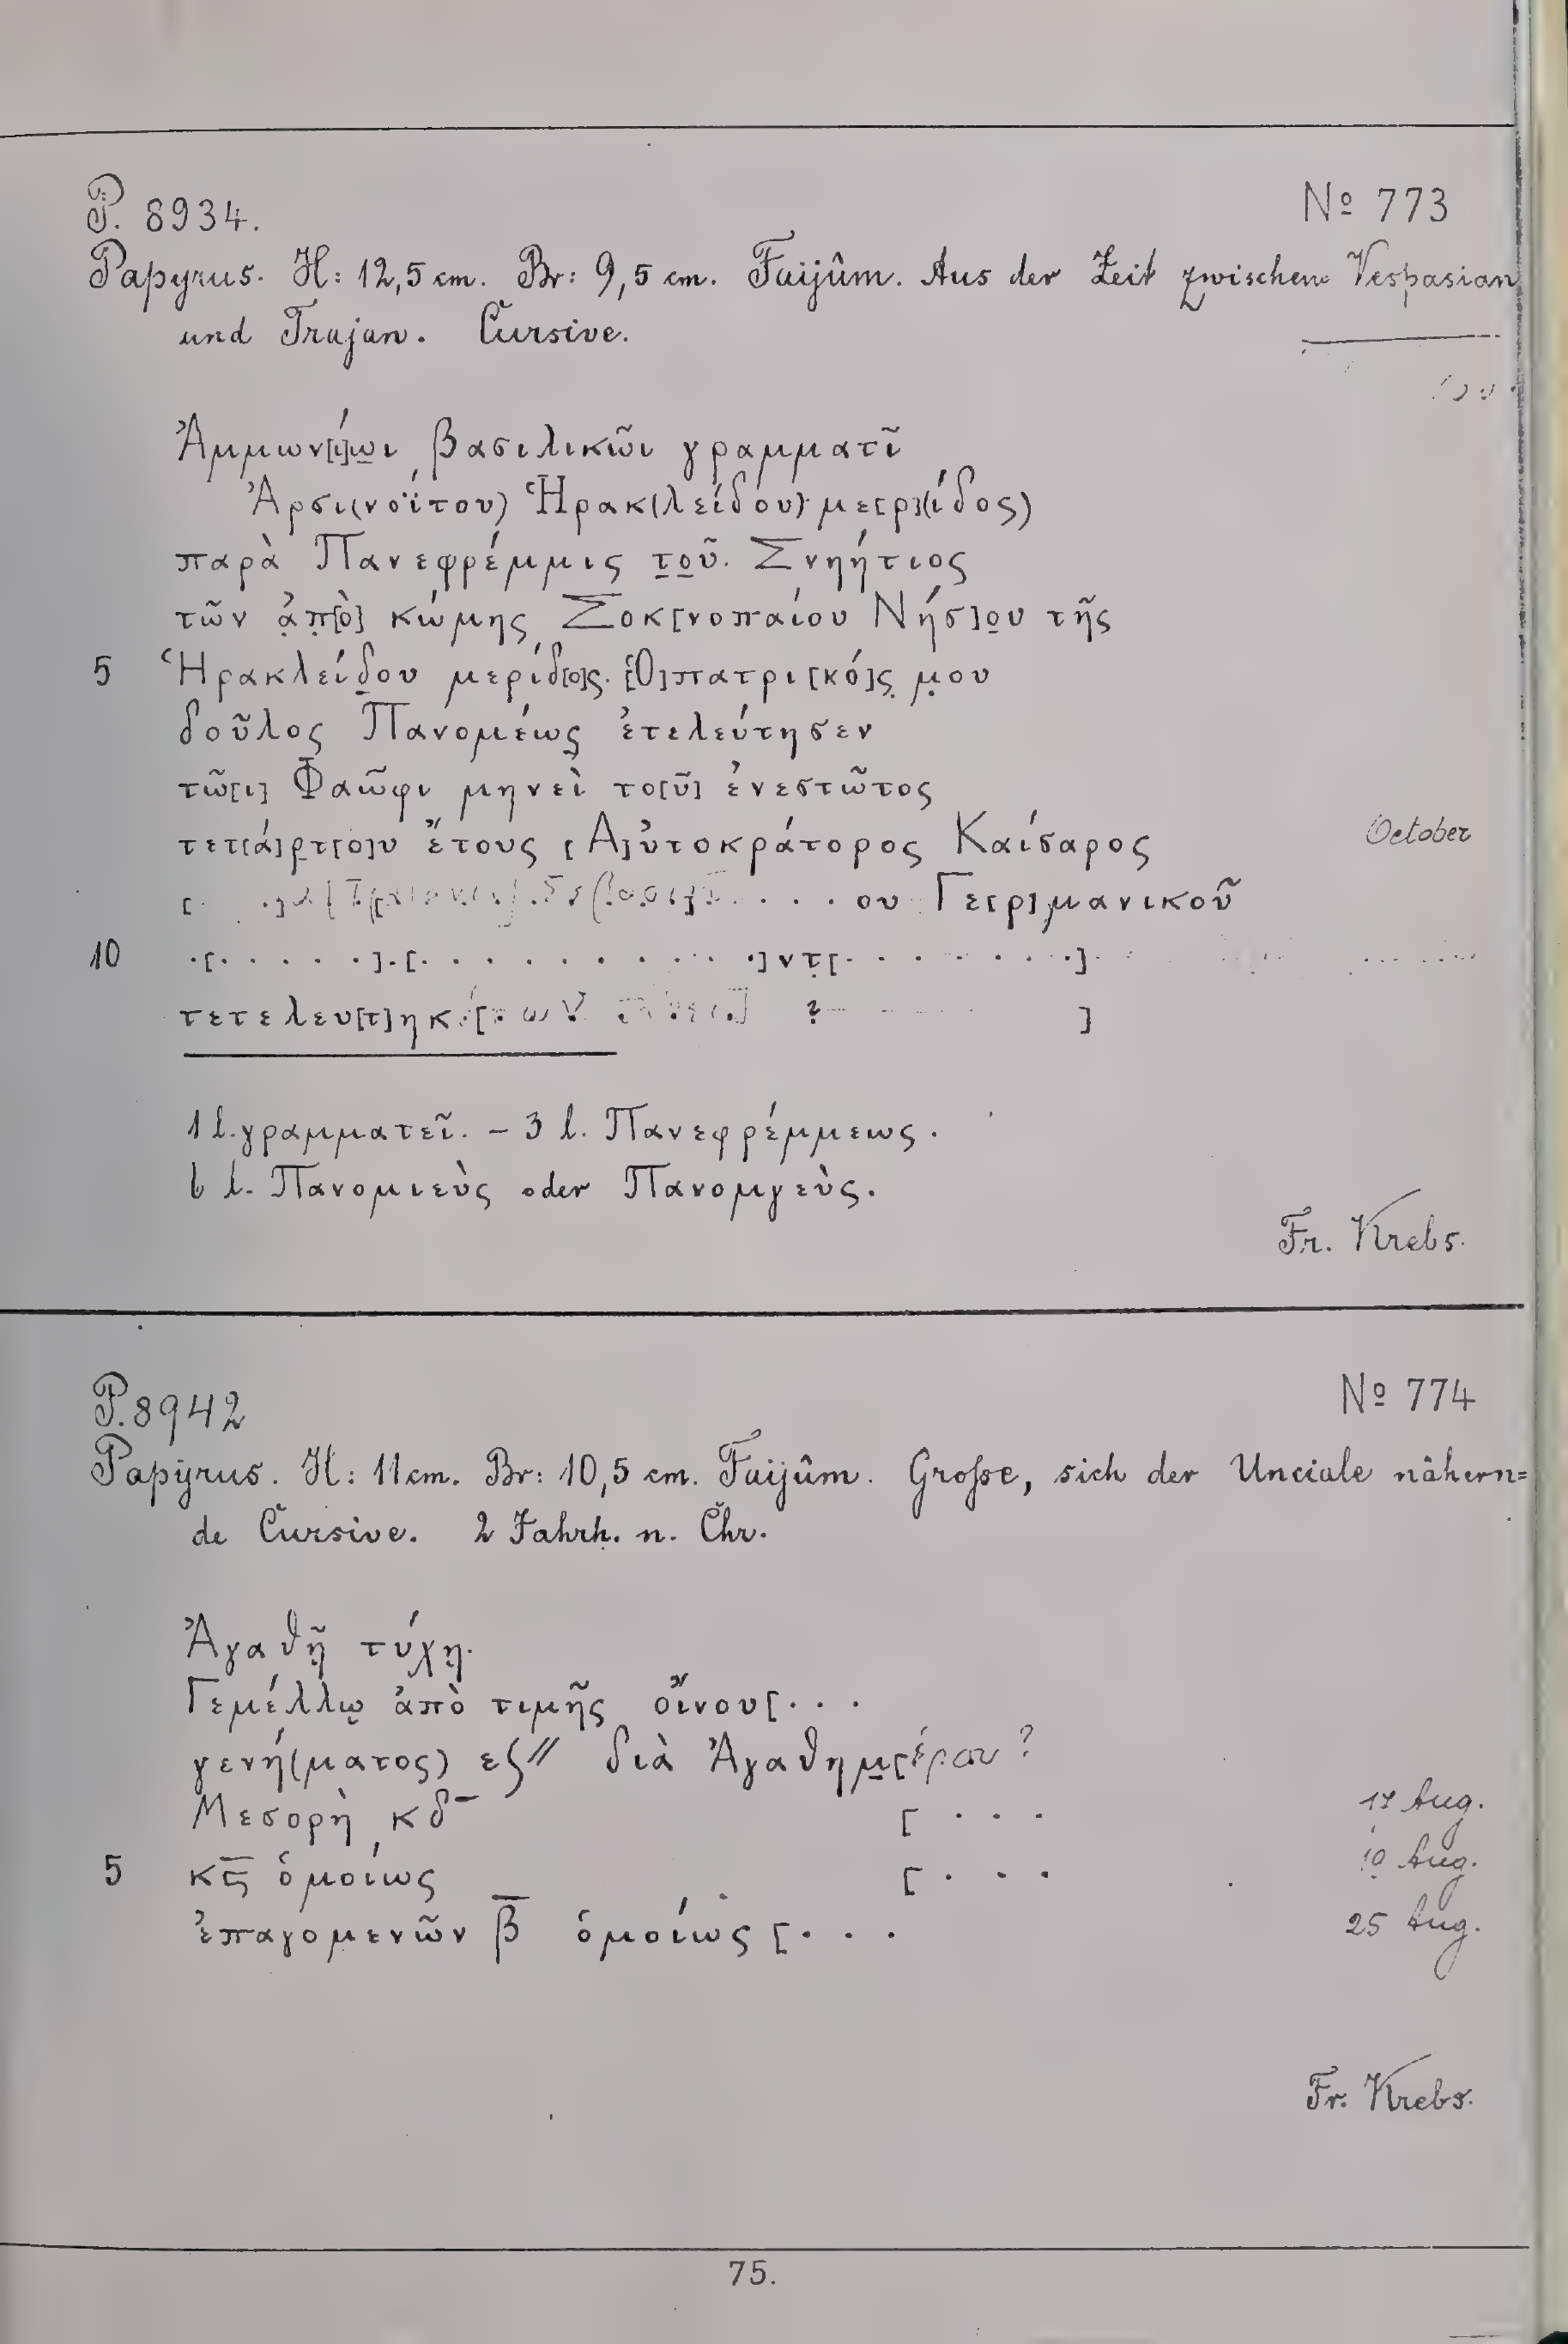 P. 8934. № 773
Papyrus. H: 12,5 cm. Br: 9,5 cm. Faijûm. Aus der Zeit zwischen Vespasian
und Trajan. Cursive.
Ἀμμων[ί]ωι βασιλικῶι γραμματῖ
Ἀρσι(νοΐτου) Ἡρακ(λείδου) με[ρ](ίδος)
παρὰ Πανεφρέμμις τοῦ Σνηήτιος
τῶν ἀπ[ὸ] κώμης Σοκ[νοπαίου Νήσ]ου τῆς
5 Ἡρακλείδου μερίδ[ο]ς. [Ὁ] πατρι[κό]ς μου
δοῦλος Πανομέως ἐτελεύτησεν
τῶ[ι] Φαῶφι μηνεὶ το[ῦ] ἐνεστῶτος
τετ[ά]ρτ[ο]υ ἔτους [Α]ὐτοκράτορος Καίσαρος October
. . . . ου Γε[ρ]μανικοῦ
10 .[. . . . .].[. . . . . . . . . .]ντ[. . . . . . .]
τετελευ[τ]ηκ ? ]
1 l. γραμματεῖ. – 3 l. Πανεφρέμμεως.
6 l. Πανομιεὺς oder Πανομγεὺς.
Fr. Krebs.
P. 8942 № 774
Papyrus. H: 11 cm. Br: 10,5 cm. Faijûm. Große, sich der Unciale nähern=
de Cursive. 2 Jahrh. n. Chr.
Ἀγαθῇ τύχῃ.
Γεμέλλῳ ἀπὸ τιμῆς οἴνου[. . .
γενή(ματος) εϛ// διὰ Ἀγαθημ[έρου ?
Μεσορὴ κδ– [. . . 17 Aug.
5 κϛ̅ ὁμοίως [. . . 19 Aug.
ἐπαγομενῶν β̅ ὁμοίως [. . . 25 Aug.
Fr. Krebs.
75.